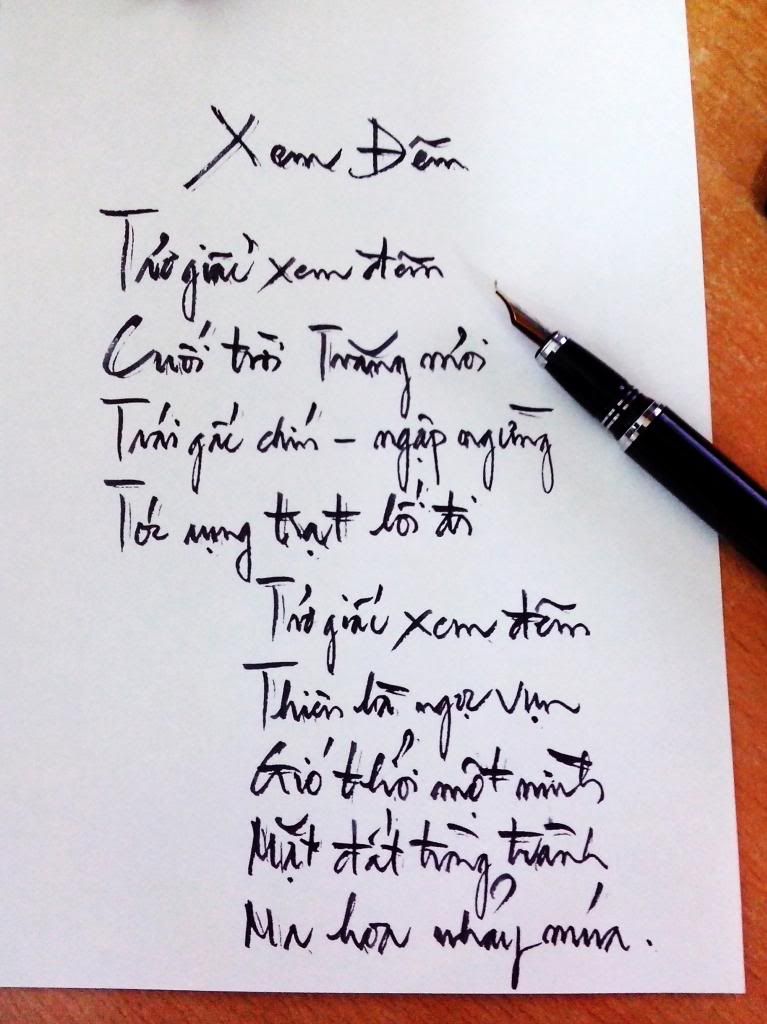 Xem Đêm
Trở giấc xem đêm
Cuối trời Trăng mới
Trái gấc chín – ngập ngừng
Tóc rụng trạt lối đi
Trở giấc xem đêm
Thiên hà ngọc vụn
Gió thổi một mình
Mặt đất tròng trành
Ma hoa nhảy múa.